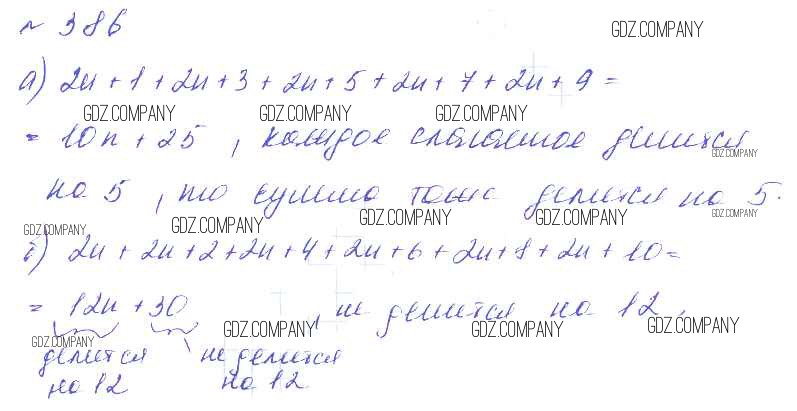 № 386
GDZ.COMPANY
а) 2n + 1 + 2n + 3 + 2n + 5 + 2n + 7 + 2n + 9 =
GDZ.COMPANY GDZ.COMPANY GDZ.COMPANY
= 10n + 25 , каждое слагаемое делится
GDZ.COMPANY
на 5 , то сумма тоже делится на 5.
GDZ.COMPANY GDZ.COMPANY GDZ.COMPANY GDZ.COMPANY GDZ.COMPANY
б) 2n + 2n + 2 + 2n + 4 + 2n + 6 + 2n + 8 + 2n + 10 =
= 12n + 30 , не делится на 12.
GDZ.COMPANY GDZ.COMPANY GDZ.COMPANY GDZ.COMPANY
делится не делится
на 12 на 12.